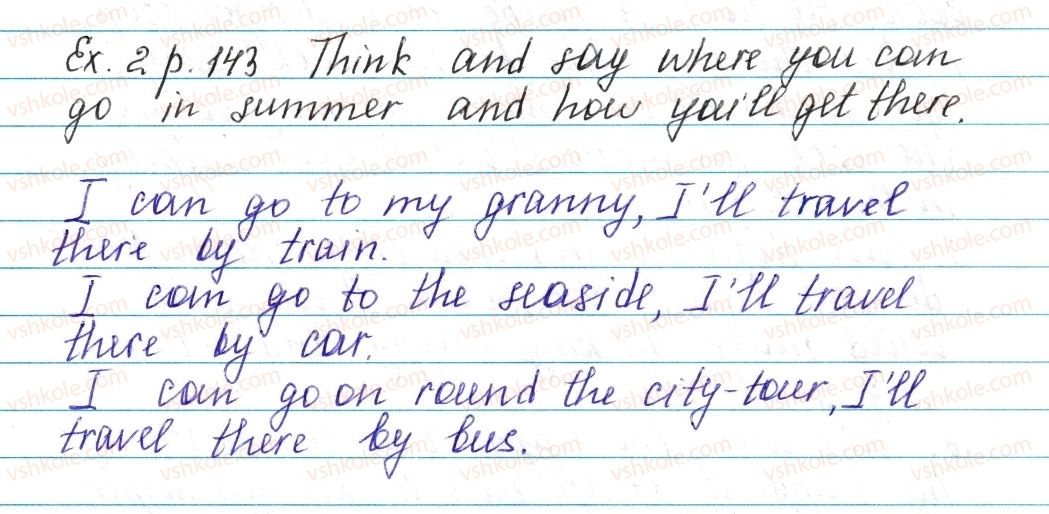 Ex. 2 p. 143 Think and say where you can
go in summer and how you'll get there.
I can go to my granny, I'll travel
there by train.
I can go to the seaside, I'll travel
there by car.
I can go on round the city-tour, I'll
travel there by bus.